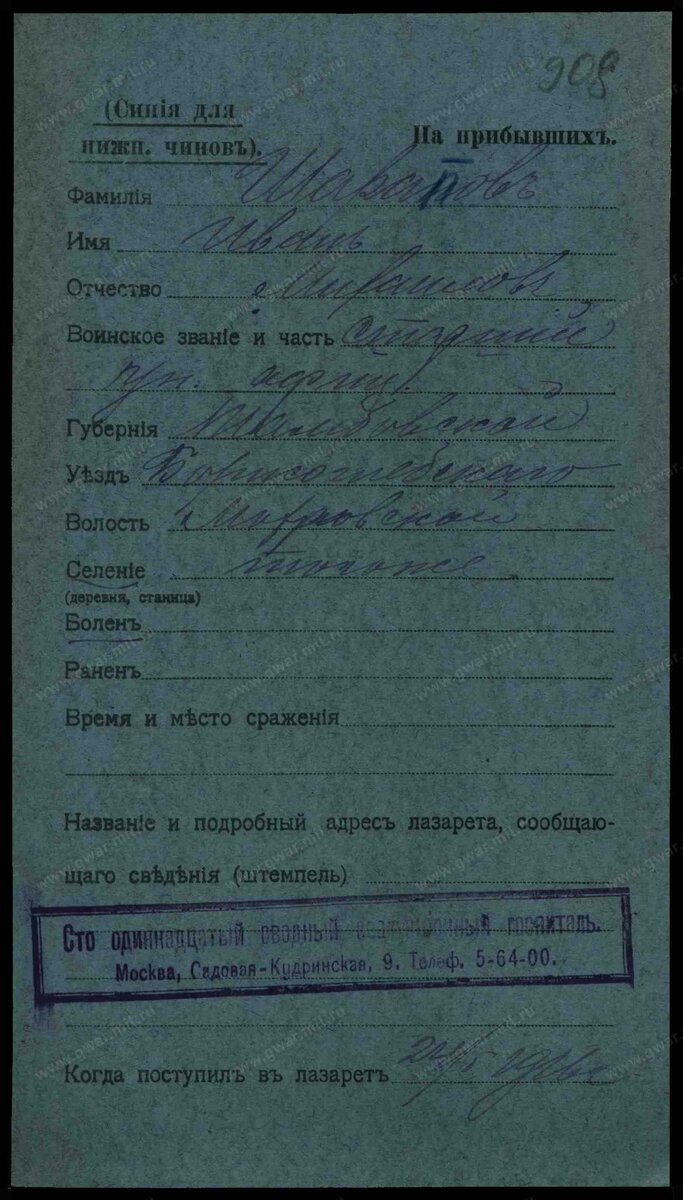 908
(Синія для
нижн. чиновъ).
На прибывшихъ.
Фамилія Шараповъ
Имя Иванъ
Отчество Михаиловъ
Воинское званіе и часть старшій
ун. офиц.
Губернія Тамбовской
Уѣздъ Борисоглебскаго
Волость Мокровской
Селеніе тогоже
(деревня, станица)
Боленъ
Раненъ
Время и мѣсто сраженія
Названіе и подробный адресъ лазарета, сообщаю-
щаго свѣдѣнія (штемпель)
Сто одиннадцатый сводный эвакуаціонный госпиталь.
Москва, Садовая-Кудринская, 9. Телеф. 5-64-00.
Когда поступилъ въ лазаретъ 24/5